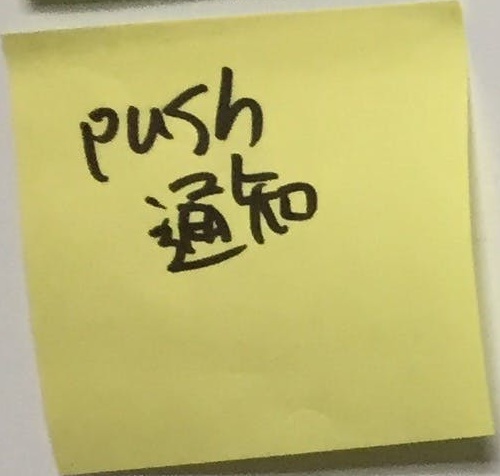 push
通知